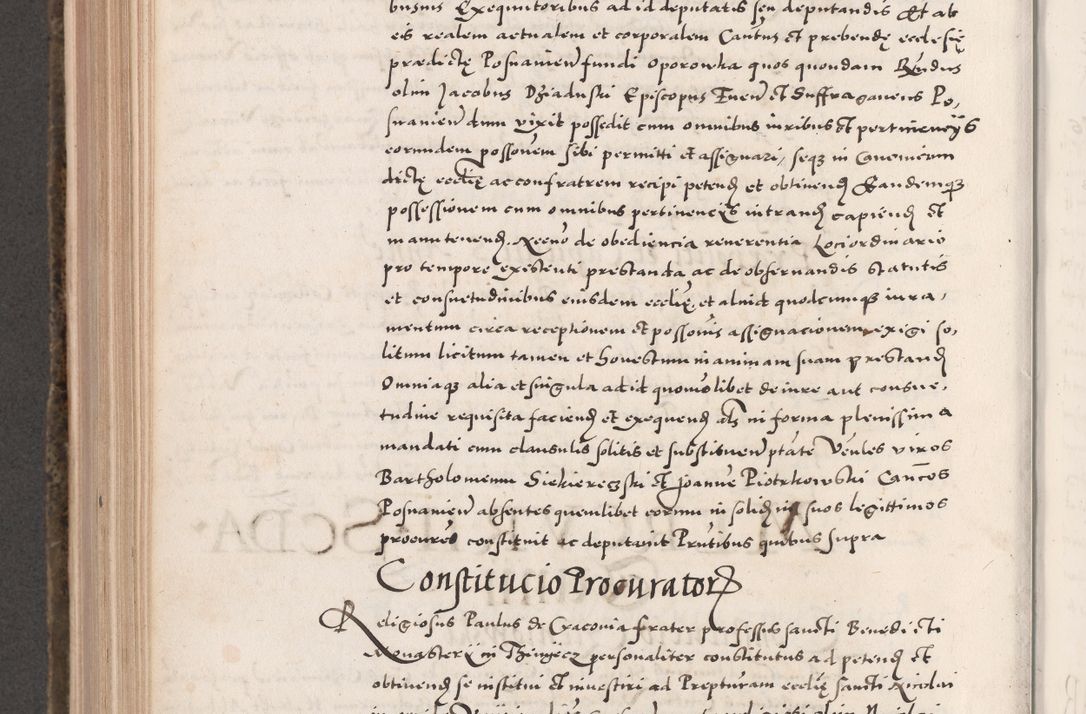 busuis Exequitoribus ad id deputatis seu deputandis Et ab
eis realem actualem et corporalem Cantus et prebendę ecclesię
prædictę Posnanien fundi Oporowka quos quondam Rndus
olim Jacobus Dziaduski Episcopus Enen et Suffraganeus Po,
snanien dum vixit possedit cum omnibus iuribus et pertinencijs
eorundem possonem sibi permitti et assignari, seqz in Canonicum
dictę ecclię ac confratrem recipi petend et obtinend Eandemqz
possessionem cum omnibus pertinencijs intrand capiend et
manutenend. Necno de obediencia reverentia Lociordinario
pro tempore existenti prestanda ac de observandis statutis
et consuetudinibus eiusdem ecclię, et aliud quodcumqz iura,
mentum circa receptionem et possonis assignacionem exigi so,
litum licitum tamen et honestum in animam suam prestand
Omniaqz alia et singula ad id quomolibet de iure aut consue,
tudine requisita faciend et exequend als in forma plenissima
mandati cum clausulis solitis et substituen ptate Venles viros
Bartholomeum Siekierezski et Joanne Piotrkowski Cancos
Posnanien absentes quemlibet eorum in solid in suos legittimos
procures constituit ac deputavit Prntibus quibus supra
Constitucio Procurator
Religiosus Paulus de Cracovia frater professus sancti Benedicti
Monasterij in Thiniecz personaliter constitutus ad petend et
obtinend se institui et investiri ad Prepturam ecclię sancti Nicolai